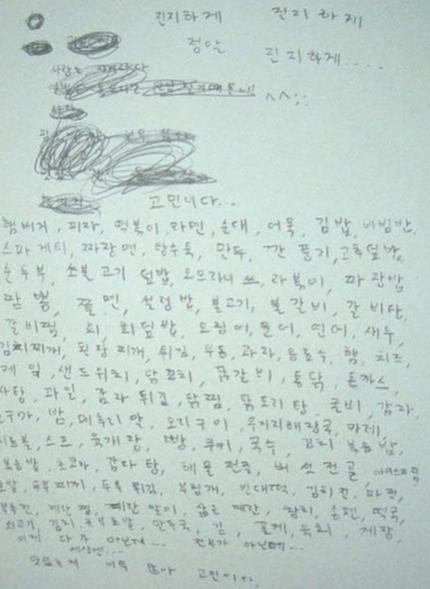 진지하게 진지하게
정말 진지하게....
^^;;
고민니다..
햄버거, 피자, 떡볶이 라면, 순대, 어묵, 김밥, 비빔밥,
스파게티, 짜장면, 탕수육, 만두, 깐풍기, 고추덮밥,
순두부, 소불고기 덮밥, 오므라이스, 라볶이, 짜장밥
짬뽕, 쫄면, 설렁탕, 불고기, 불갈비, 갈비탕,
갈비찜, 회, 회덮밥, 오징어, 문어, 연어, 새우,
김치찌개, 된장찌개, 튀김, 우동, 과자, 음료수, 햄, 치즈,
샌드위치, 닭꼬치, 닭갈비, 통닭, 돈까스,
사탕, 과일, 감자 튀김, 닭찜, 닭도리탕, 굴비, 감자,
밤, 메추리알, 오리구이, 우거지해장국, 카레,
스프, 육개장, 빵, 쿠키, 국수, 김치볶음밥,
볶음밥, 초코바, 감자탕, 해물전골, 버섯전골
두부찌개, 두부튀김, 부침개, 빈대떡, 김치전, 파전,
계란찜, 계란말이, 삶은계란, 송편, 떡국,
만두국, 김, 꽃게, 육회, 게장,
이게 다가 아닌데... 전부가 아닌데...
너무 많아 고민이다.